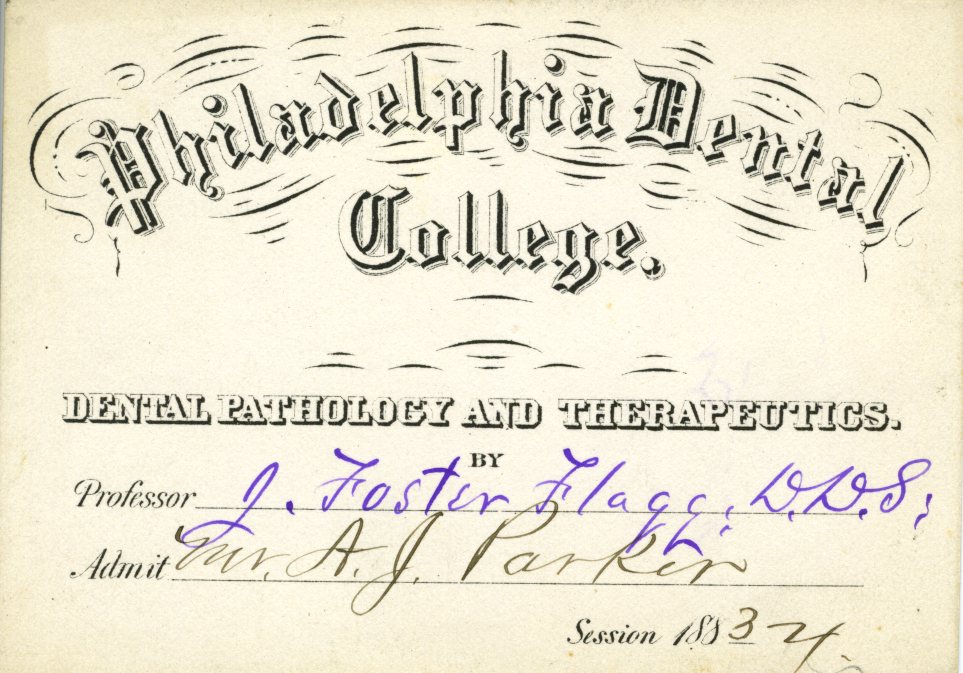 Philadelphia Dental
College.
DENTAL PATHOLOGY AND THERAPEUTICS.
BY
Professor J. Foster Flagg, D.D.S.
Admit Mr. A. J. Parker
Session 1883-4.